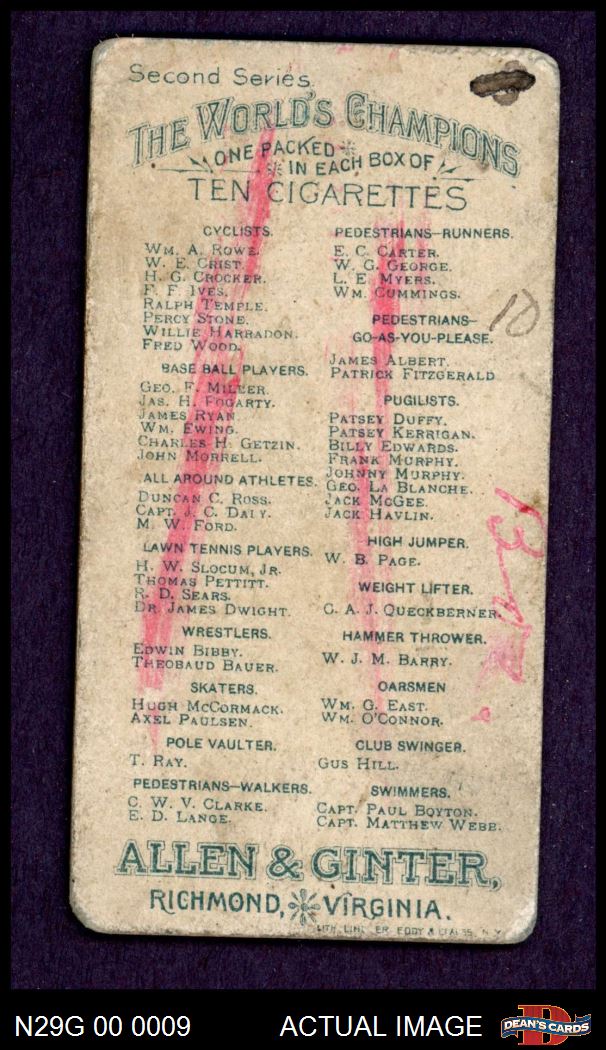 Second Series.
THE WORLD'S CHAMPIONS
ONE PACKED
IN EACH BOX OF
TEN CIGARETTES
CYCLISTS.
WM. A. ROWE.
W. E. CRIST.
H. G. CROCKER.
F. F. IVES.
RALPH TEMPLE.
PERCY STONE.
WILLIE HARRADON.
FRED WOOD.
BASE BALL PLAYERS.
GEO. F. MILLER.
JAS. H. FOGARTY.
JAMES RYAN
WM. EWING.
CHARLES H. GETZIN.
JOHN MORRELL.
ALL AROUND ATHLETES.
DUNCAN C. ROSS.
CAPT. J. C. DALY.
M. W. FORD.
LAWN TENNIS PLAYERS.
H. W. SLOCUM, JR.
THOMAS PETTITT.
R. D. SEARS.
DR. JAMES DWIGHT.
WRESTLERS.
EDWIN BIBBY.
THEOBAUD BAUER.
SKATERS.
HUGH MCCORMACK.
AXEL PAULSEN.
POLE VAULTER.
T. RAY.
PEDESTRIANS—WALKERS.
C. W. V. CLARKE.
E. D. LANGE.
PEDESTRIANS—RUNNERS.
E. C. CARTER.
W. G. GEORGE.
L. E. MYERS.
WM. CUMMINGS.
PEDESTRIANS—
GO-AS-YOU-PLEASE.
JAMES ALBERT.
PATRICK FITZGERALD
PUGILISTS.
PATSEY DUFFY.
PATSEY KERRIGAN.
BILLY EDWARDS.
FRANK MURPHY.
JOHNNY MURPHY.
GEO. LA BLANCHE.
JACK MCGEE.
JACK HAVLIN.
HIGH JUMPER.
W. B. PAGE.
WEIGHT LIFTER.
C. A. J. QUECKBERNER.
HAMMER THROWER.
W. J. M. BARRY.
OARSMEN
WM. G. EAST.
WM. O'CONNOR.
CLUB SWINGER.
GUS HILL.
SWIMMERS.
CAPT. PAUL BOYTON.
CAPT. MATTHEW WEBB.
10
ALLEN & GINTER,
RICHMOND, VIRGINIA.
N29G 00 0009
ACTUAL IMAGE
D
DEAN'S CARDS